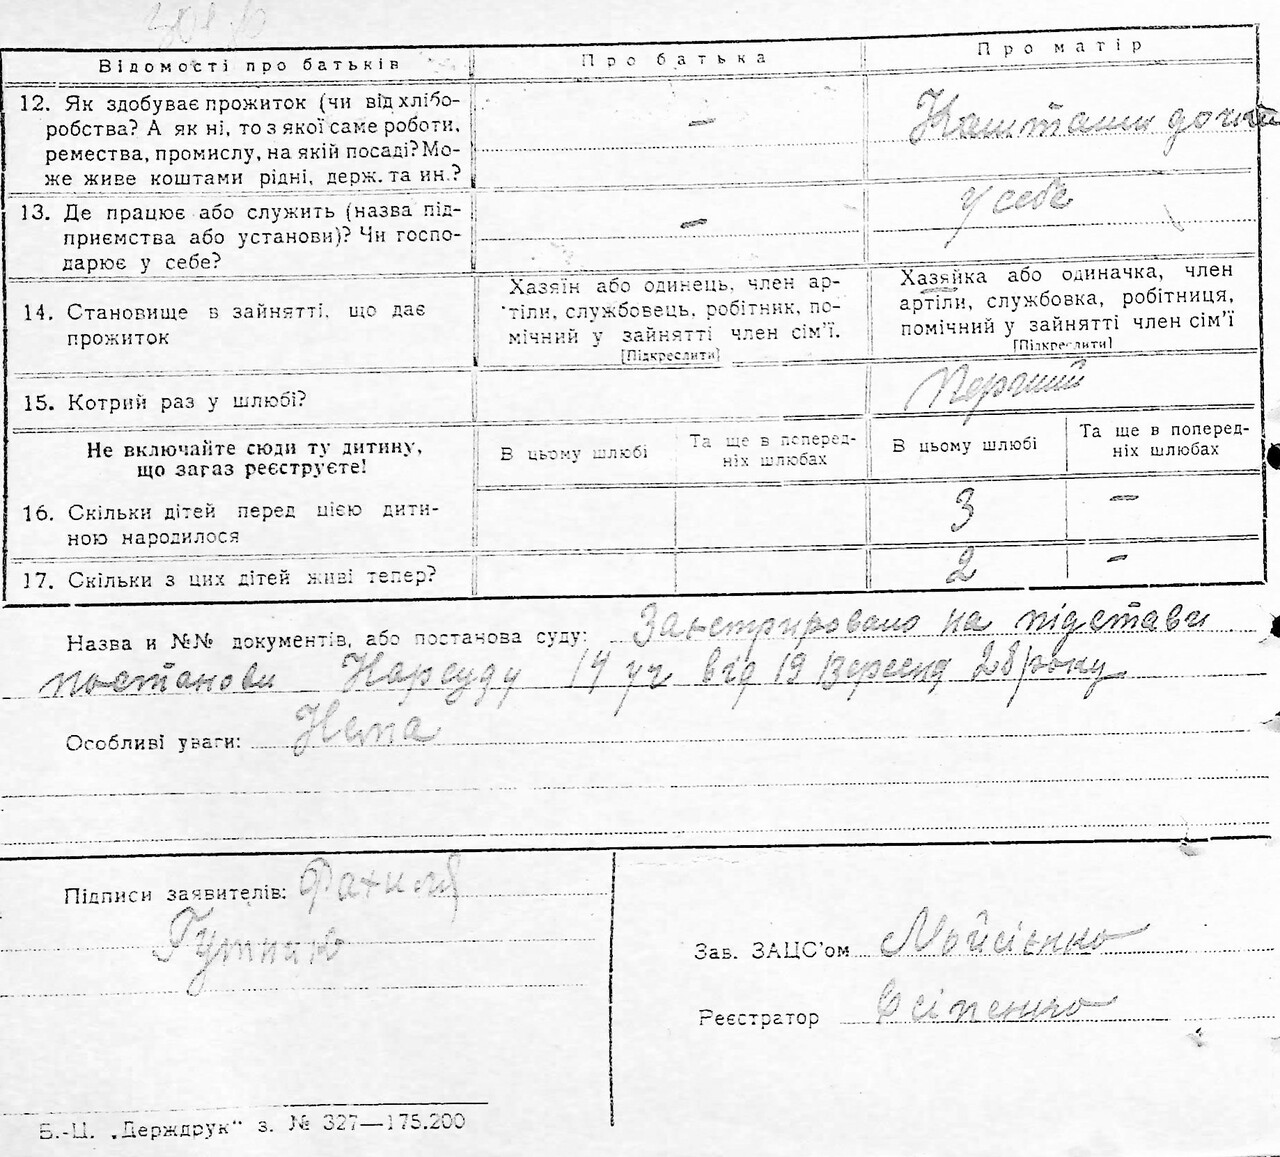 Відомості про батьків
Про батька
Про матір
12. Як здобуває прожиток (чи від хлібо-
робства? А як ні, то з якої саме роботи,
ремества, промислу, на якій посаді? Мо-
же живе коштами рідні, держ. та ин.?
—
Коштами
13. Де працює або служить (назва під-
приємства або установи)? Чи госпо-
дарює у себе?
—
у себе
14. Становище в зайнятті, що дає
прожиток
Хазяїн або одинець, член ар-
тіли, службовець, робітник, по-
мічний у зайнятті член сім'ї.
[Підкреслити]
Хазяйка або одиначка, член
артіли, службовка, робітниця,
помічний у зайнятті член сім'ї
[Підкреслити]
15. Котрий раз у шлюбі?
Перший
Не включайте сюди ту дитину,
що зараз реєструєте!
В цьому шлюбі
Та ще в поперед-
ніх шлюбах
В цьому шлюбі
Та ще в поперед-
ніх шлюбах
16. Скільки дітей перед цією дити-
ною народилося
3
—
17. Скільки з цих дітей живі тепер?
2
-
Назва и №№ документів, або постанова суду: на підстави
постанови Нарсуду 14 уч від 19 Вересня 28 року
Особливі уваги: Нема
Підписи заявителів:
Зав. ЗАЦС'ом Мойсієнко
Реєстратор Осіпенко
Б.-Ц. „Держдрук" з. № 327—175.200